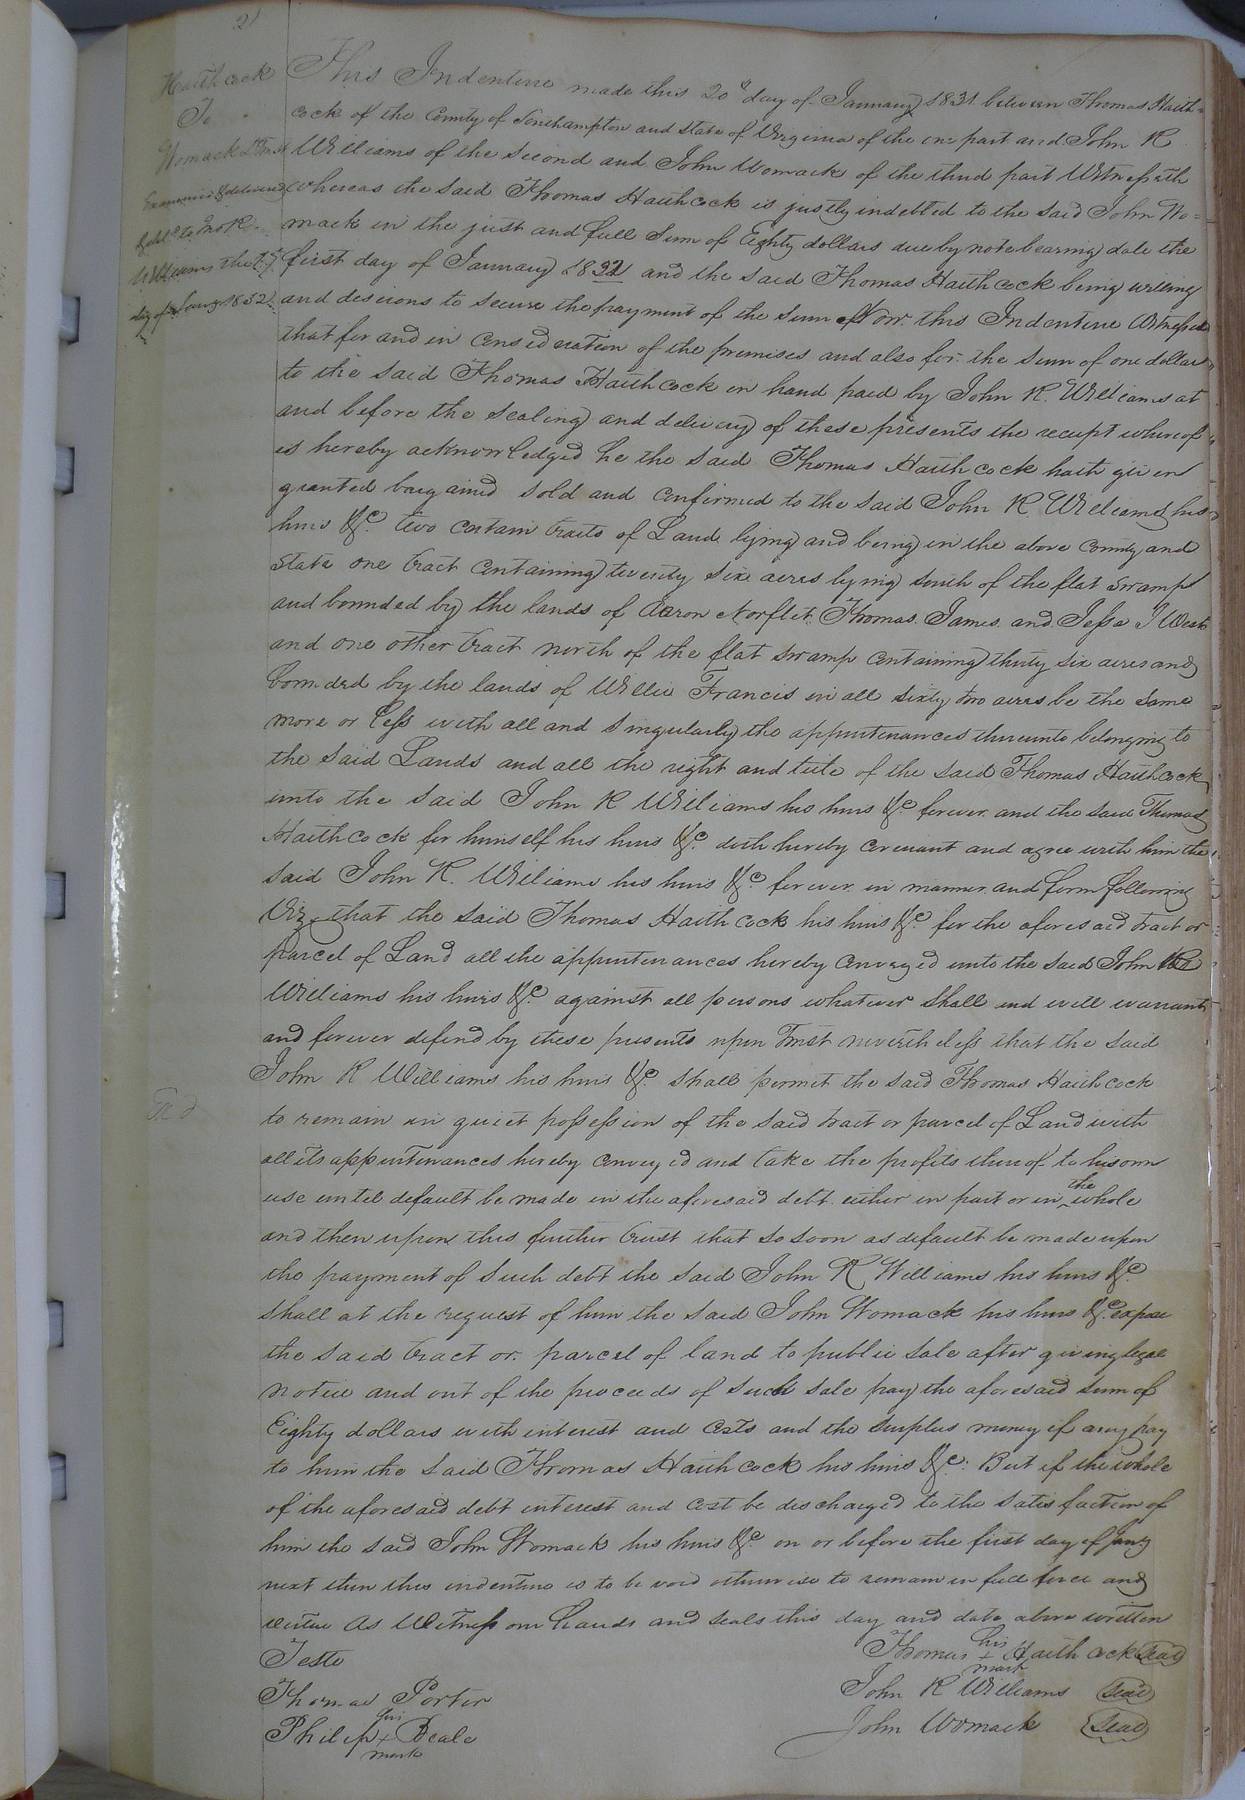 21
Haithcock
To
Womack D Trust
Examined & delivered
Jno R.
Williams the
day of Jany 1832
This Indenture made this 20th day of January 1831 between Thomas Haith=
cock of the County of Southampton and State of Virginia of the one part and John R
Williams of the second and John Womack of the third part Witnesseth
whereas the said Thomas Haithcock is justly indebted to the said John Wo=
mack in the just and full Sum of Eighty dollars due by note bearing date the
first day of January 1831 and the said Thomas Haithcock being willing
and desirous to secure the payment of the Sum Now this Indenture Witnesseth
that for and in consideration of the premises and also for the sum of one dollar
to the said Thomas Haithcock in hand paid by John R. Williams at
and before the sealing and delivery of these presents the receipt whereof
is hereby acknowledged he the said Thomas Haithcock hath given
granted bargained sold and confirmed to the said John R Williams his
heirs &c. two certain tracts of Land lying and being in the above County and
State one tract containing twenty six acres lying south of the flat swamp
and bounded by the lands of Aaron Norflet Thomas James and Jesse J West
and one other tract north of the flat swamp containing thirty six acres and
bounded by the lands of Willie Francis in all sixty two acres be the same
more or less with all and singularly the appurtenances thereunto belonging to
the said Lands and all the right and title of the said Thomas Haithcock
unto the said John R Williams his heirs &c. forever and the said Thomas
Haithcock for himself his heirs &c. doth hereby covenant and agree with him the
said John R. Williams his heirs &c. forever in manner and form following
Viz, that the said Thomas Haithcock his heirs &c. for the aforesaid tract or
parcel of Land all the appurtenances hereby conveyed unto the said John R
Williams his heirs &c. against all persons whatever shall and will warrant
and forever defend by these presents upon Trust nevertheless that the said
John R Williams his heirs &c. shall permit the said Thomas Haithcock
to remain in quiet possession of the said tract or parcel of Land with
all its appurtenances hereby conveyed and take the profits thereof to his own
use until default be made in the aforesaid debt either in part or in the whole
and then upon this further trust that so soon as default be made upon
the payment of such debt the said John R Williams his heirs &c.
shall at the request of him the said John Womack his heirs &c. expose
the said tract or parcel of land to public sale after giving legal
notice and out of the proceeds of such sale pay the aforesaid sum of
Eighty dollars with interest and costs and the surplus money if any pay
to him the said Thomas Haithcock his heirs &c. But if the whole
of the aforesaid debt interest and cost be discharged to the satisfaction of
him the said John Womack his heirs &c. on or before the first day of Jany
next then this indenture is to be void otherwise to remain in full force and
virtue As Witness our hands and seals this day and date above written
Teste
Thomas his + mark Haithcock Seal
Thomas Porter
John R Williams Seal
Philip his + mark Beale
John Womack Seal